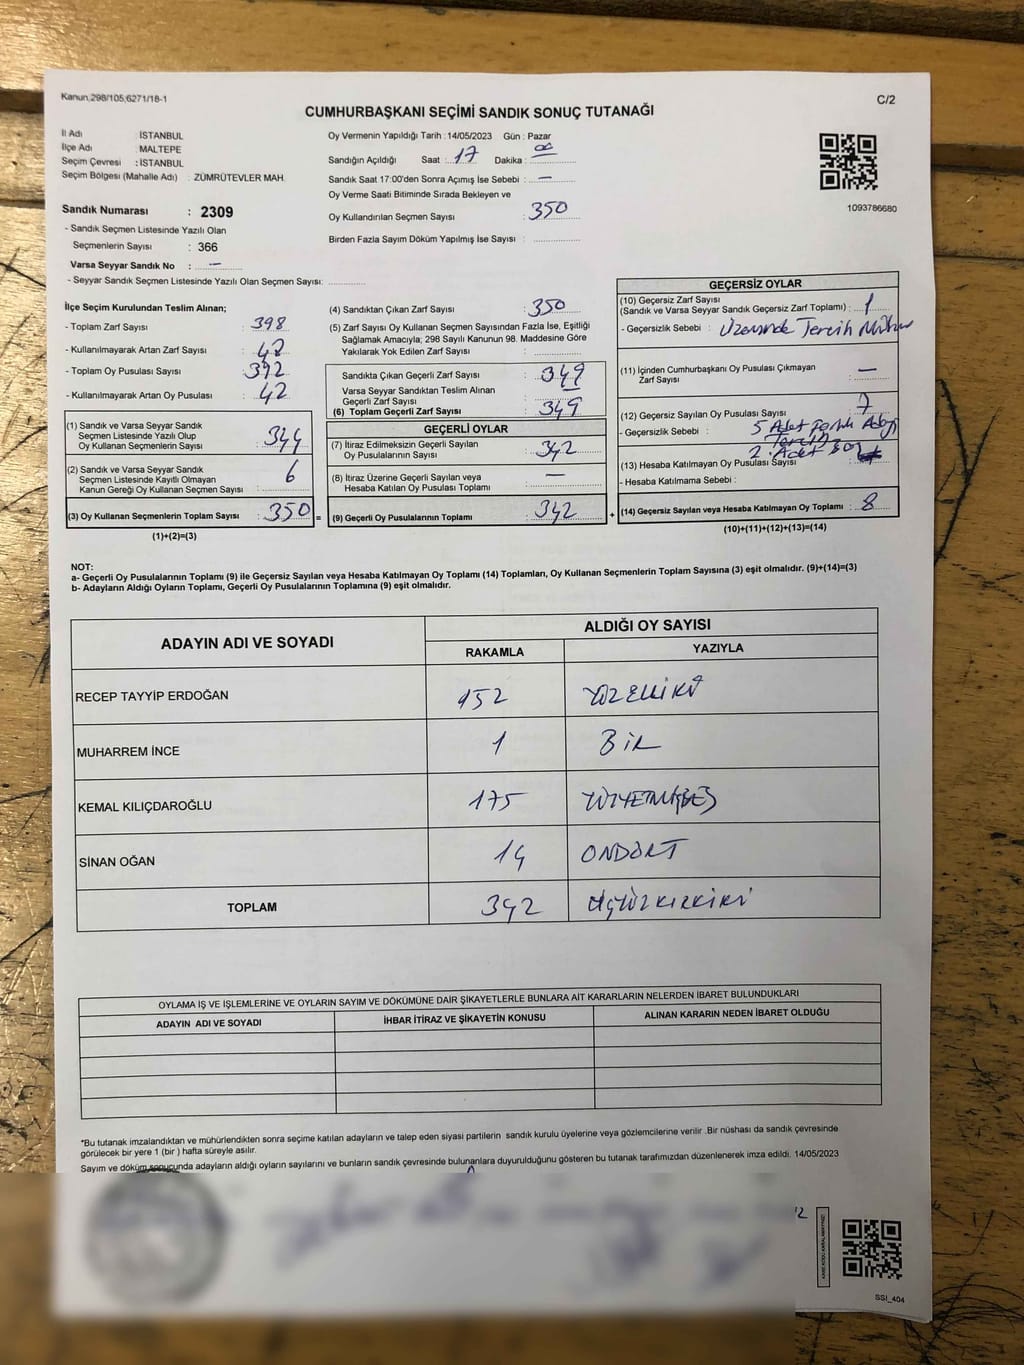 Kanun;298/105;6271/18-1
C/2
CUMHURBAŞKANI SEÇİMİ SANDIK SONUÇ TUTANAĞI
İl Adı : İSTANBUL
İlçe Adı : MALTEPE
Seçim Çevresi : İSTANBUL
Seçim Bölgesi (Mahalle Adı) : ZÜMRÜTEVLER MAH.
Sandık Numarası : 2309
- Sandık Seçmen Listesinde Yazılı Olan
Seçmenlerin Sayısı : 366
Varsa Seyyar Sandık No : —
- Seyyar Sandık Seçmen Listesinde Yazılı Olan Seçmen Sayısı:
Oy Vermenin Yapıldığı Tarih : 14/05/2023 Gün : Pazar
Sandığın Açıldığı Saat : 17 Dakika : 00
Sandık Saat 17:00'den Sonra Açımış İse Sebebi : —
Oy Verme Saati Bitiminde Sırada Bekleyen ve
Oy Kullandırılan Seçmen Sayısı : 350
Birden Fazla Sayım Döküm Yapılmış İse Sayısı :
1093786680
İlçe Seçim Kurulundan Teslim Alınan;
- Toplam Zarf Sayısı : 398
- Kullanılmayarak Artan Zarf Sayısı : 42
- Toplam Oy Pusulası Sayısı : 392
- Kullanılmayarak Artan Oy Pusulası : 42
(1) Sandık ve Varsa Seyyar Sandık
Seçmen Listesinde Yazılı Olup
Oy Kullanan Seçmenlerin Sayısı : 344
(2) Sandık ve Varsa Seyyar Sandık
Seçmen Listesinde Kayıtlı Olmayan
Kanun Gereği Oy Kullanan Seçmen Sayısı : 6
(3) Oy Kullanan Seçmenlerin Toplam Sayısı : 350 =
(1)+(2)=(3)
(4) Sandıktan Çıkan Zarf Sayısı : 350
(5) Zarf Sayısı Oy Kullanan Seçmen Sayısından Fazla İse, Eşitliği
Sağlamak Amacıyla; 298 Sayılı Kanunun 98. Maddesine Göre
Yakılarak Yok Edilen Zarf Sayısı :
Sandıkta Çıkan Geçerli Zarf Sayısı : 349
Varsa Seyyar Sandıktan Teslim Alınan
Geçerli Zarf Sayısı : —
(6) Toplam Geçerli Zarf Sayısı : 349
GEÇERLİ OYLAR
(7) İtiraz Edilmeksizin Geçerli Sayılan
Oy Pusulalarının Sayısı : 342
(8) İtiraz Üzerine Geçerli Sayılan veya
Hesaba Katılan Oy Pusulası Toplamı : —
(9) Geçerli Oy Pusulalarının Toplamı : 342 +
GEÇERSİZ OYLAR
(10) Geçersiz Zarf Sayısı
(Sandık ve Varsa Seyyar Sandık Geçersiz Zarf Toplamı) : 1
- Geçersizlik Sebebi : Üzerinde Tercih Mührü
(11) İçinden Cumhurbaşkanı Oy Pusulası Çıkmayan
Zarf Sayısı : —
(12) Geçersiz Sayılan Oy Pusulası Sayısı : 7
- Geçersizlik Sebebi : 5 Adet Farklı Aday
Tercih
2. Adet Boş
(13) Hesaba Katılmayan Oy Pusulası Sayısı :
- Hesaba Katılmama Sebebi :
(14) Geçersiz Sayılan veya Hesaba Katılmayan Oy Toplamı : 8
(10)+(11)+(12)+(13)=(14)
NOT:
a- Geçerli Oy Pusulalarının Toplamı (9) ile Geçersiz Sayılan veya Hesaba Katılmayan Oy Toplamı (14) Toplamları, Oy Kullanan Seçmenlerin Toplam Sayısına (3) eşit olmalıdır. (9)+(14)=(3)
b- Adayların Aldığı Oyların Toplamı, Geçerli Oy Pusulalarının Toplamına (9) eşit olmalıdır.
ADAYIN ADI VE SOYADI
ALDIĞI OY SAYISI
RAKAMLA YAZIYLA
RECEP TAYYİP ERDOĞAN 152 YÜZELLİİKİ
MUHARREM İNCE 1 BİR
KEMAL KILIÇDAROĞLU 175 YÜZYETMİŞBEŞ
SİNAN OĞAN 14 ONDÖRT
TOPLAM 342 ÜÇYÜZKIRKİKİ
OYLAMA İŞ VE İŞLEMLERİNE VE OYLARIN SAYIM VE DÖKÜMÜNE DAİR ŞİKAYETLERLE BUNLARA AİT KARARLARIN NELERDEN İBARET BULUNDUKLARI
ADAYIN ADI VE SOYADI İHBAR İTİRAZ VE ŞİKAYETİN KONUSU ALINAN KARARIN NEDEN İBARET OLDUĞU
*Bu tutanak imzalandıktan ve mühürlendikten sonra seçime katılan adayların ve talep eden siyasi partilerin sandık kurulu üyelerine veya gözlemcilerine verilir .Bir nüshası da sandık çevresinde
görülecek bir yere 1 (bir ) hafta süreyle asılır.
Sayım ve döküm sonucunda adayların aldığı oyların sayılarını ve bunların sandık çevresinde bulunanlara duyurulduğunu gösteren bu tutanak tarafımızdan düzenlenerek imza edildi. 14/05/2023
SSİ_404